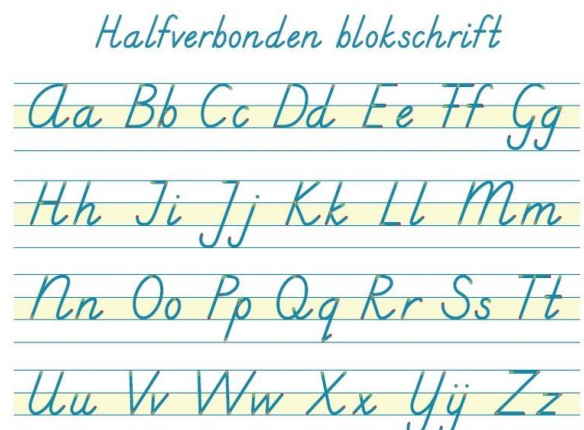 Halfverbonden blokschrift
Aa Bb Cc Dd Ee Ff Gg
Hh Ii Jj Kk Ll Mm
Nn Oo Pp Qq Rr Ss Tt
Uu Vv Ww Xx Yÿ Zz